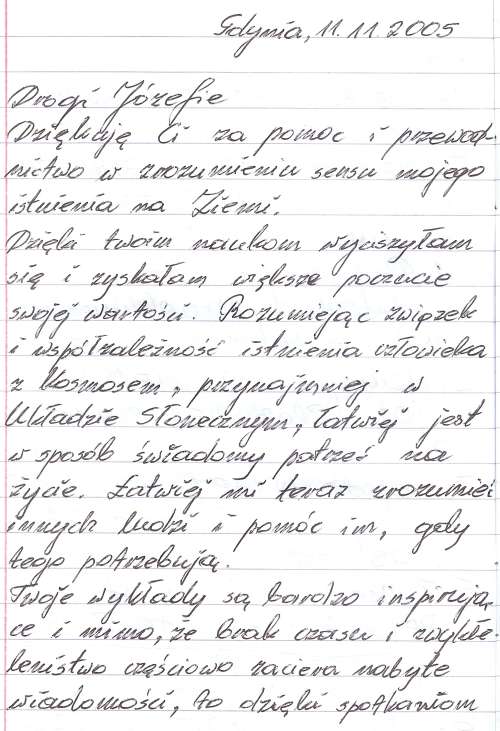 Gdynia, 11.11.2005
Drogi Józefie
Dziękuję Ci za pomoc i przewod-
nictwo w zrozumieniu sensu mojego
istnienia na Ziemi.
Dzięki twoim naukom wyciszyłam
się i zyskałam większe poczucie
swojej wartości. Rozumiejąc związek
i współzależność istnienia człowieka
z Kosmosem, przynajmniej w
Układzie Słonecznym, łatwiej jest
w sposób świadomy patrzeć na
życie. Łatwiej mi teraz zrozumieć
innych ludzi i pomóc im, gdy
tego potrzebują.
Twoje wykłady są bardzo inspirują-
ce i mimo, że brak czasu i zwykłe
lenistwo częściowo zaciera nabyte
wiadomości, to dzięki spotkaniom